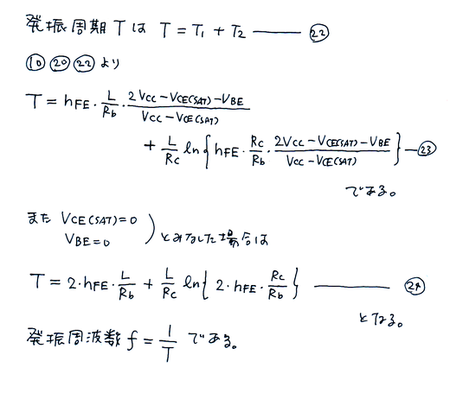 発振周期 T は T = T₁ + T₂ ——— ㉒
⑩ ⑳ ㉒ より
T = hFE · L/Rb · (2VCC − VCE(SAT) − VBE)/(VCC − VCE(SAT))
+ L/Rc ln{hFE · Rc/Rb · (2VCC − VCE(SAT) − VBE)/(VCC − VCE(SAT))} — ㉓
である。
また VCE(SAT) = 0
VBE = 0 ) とみなした場合は
T = 2 · hFE · L/Rb + L/Rc ln{2 · hFE · Rc/Rb} ——— ㉔
となる。
発振周波数 f = 1/T である。